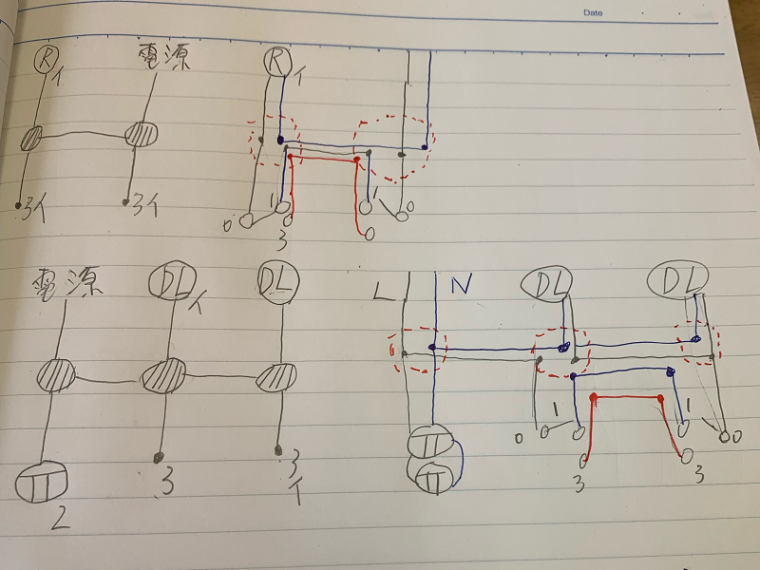 Date
R イ
電源
R イ
3イ
3イ
0 1 3
1 0
電源
DL イ
DL
L
N
DL
DL
0 1
1 0
2
3
3イ
3
3